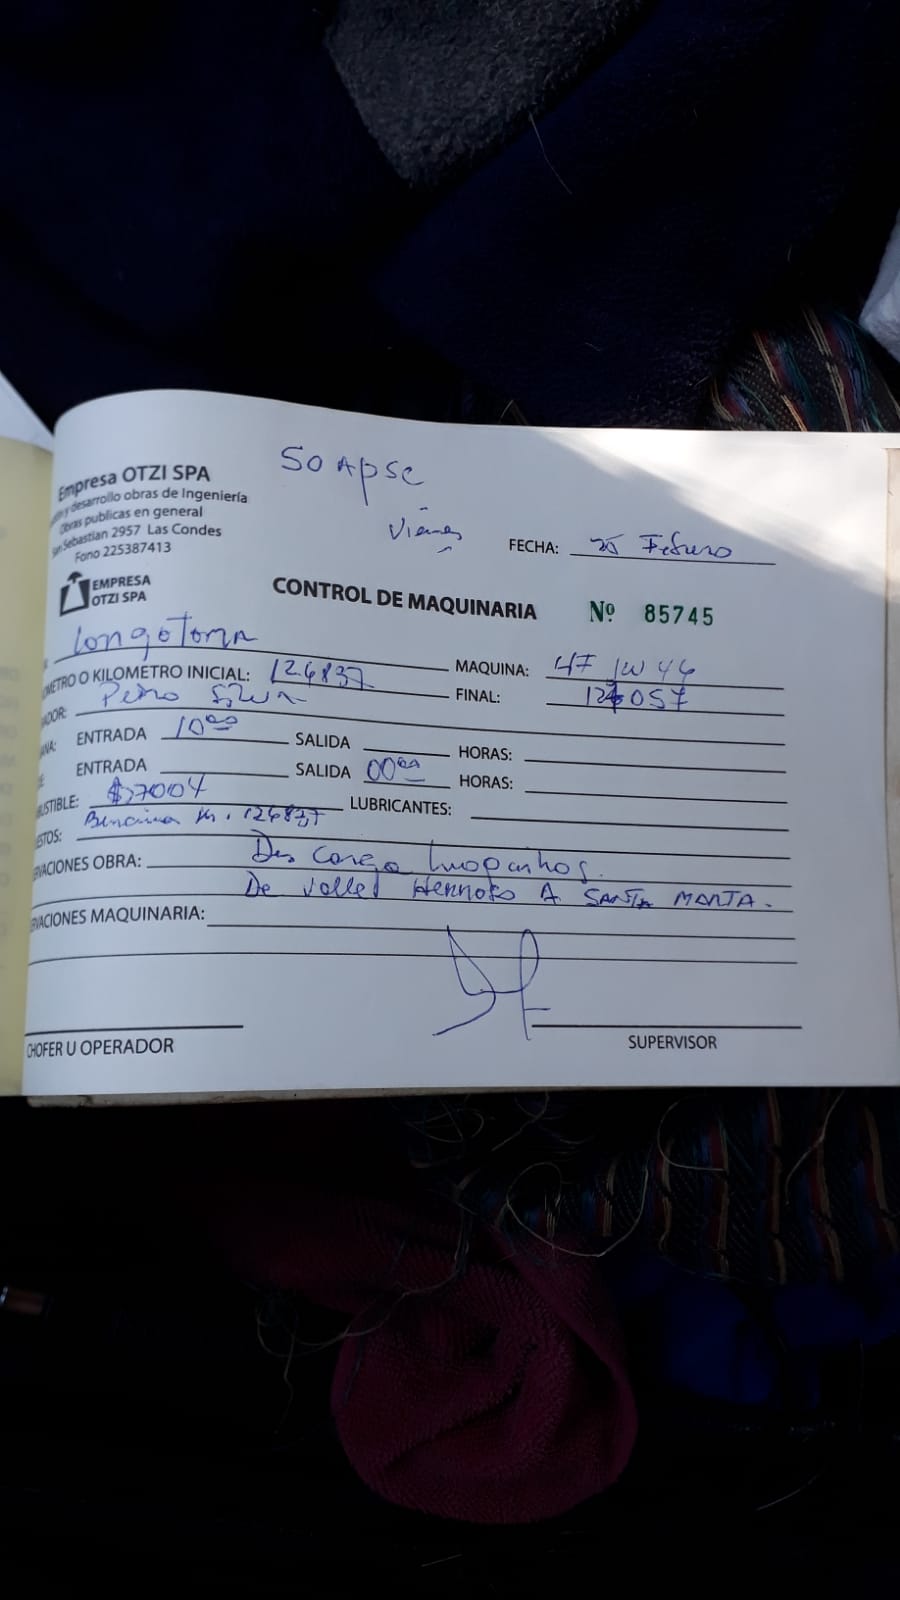 Empresa OTZI SPA
y desarrollo obras de Ingeniería
Obras publicas en general
San Sebastian 2957 Las Condes
Fono 225387413
EMPRESA
OTZI SPA
Viernes
FECHA: 25 Febrero
CONTROL DE MAQUINARIA Nº 85745
Longotoma
OMETRO O KILOMETRO INICIAL: 126837 MAQUINA:
ADOR: Pedro Silva FINAL: 057
ANA: ENTRADA 10:00 SALIDA HORAS:
DE ENTRADA SALIDA 00:00 HORAS:
BUSTIBLE: $7004 LUBRICANTES:
ESTOS: Bencina km. 126837
RVACIONES OBRA: Des carga
De valle Hermoso A SANTA MARTA.
RVACIONES MAQUINARIA:
CHOFER U OPERADOR SUPERVISOR